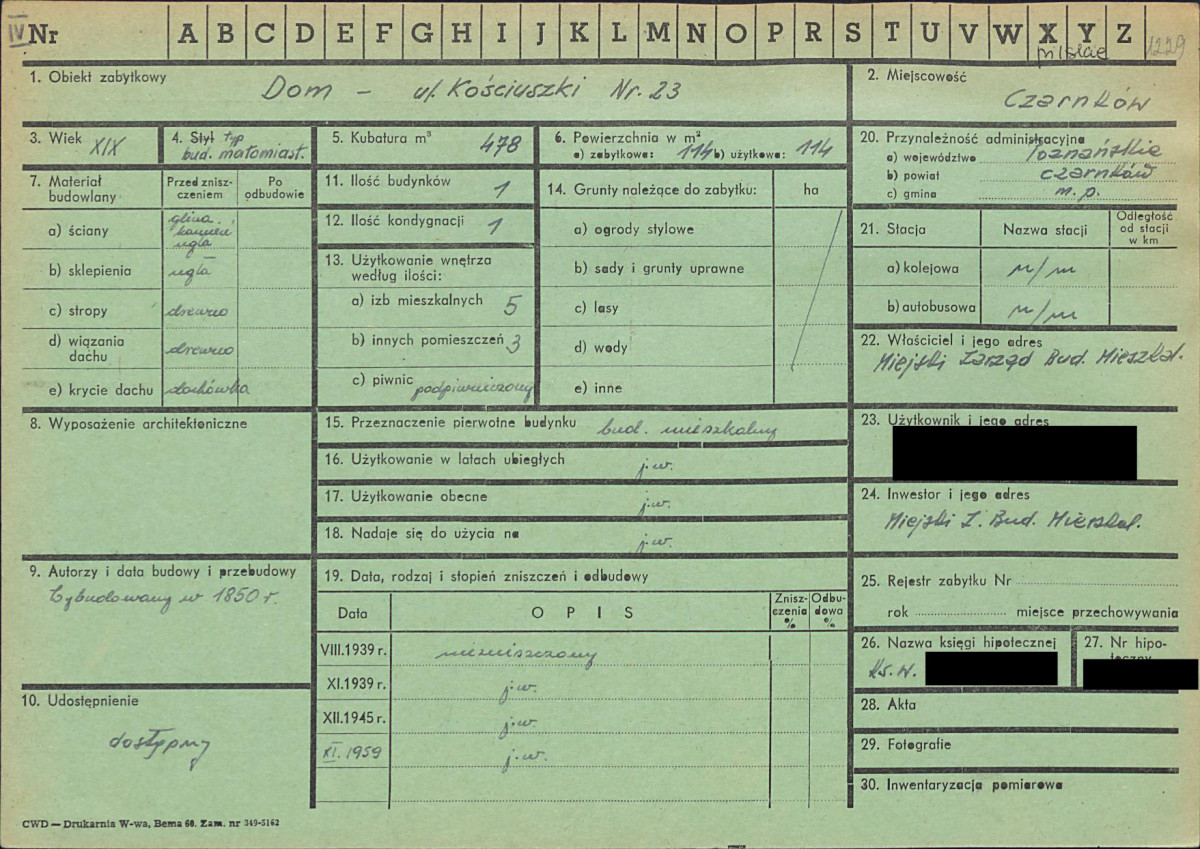 IV Nr A B C D E F G H I J K L M N O P R S T U V W X Y Z 1229
1. Obiekt zabytkowy
Dom – ul. Kościuszki Nr. 23
2. Miejscowość
Czarnków
3. Wiek XIX
4. Styl typ
bud. małomiast.
5. Kubatura m³ 478
6. Powierzchnia w m²
a) zabytkowa: 114 b) użytkowa: 114
20. Przynależność administracyjna
a) województwo Poznańskie
b) powiat czarnków
c) gmina m. p.
7. Materiał budowlany
Przed znisz-
czeniem
Po
odbudowie
a) ściany glina.
kamień
cegła
b) sklepienia cegła
c) stropy drewno
d) wiązania
dachu drewno
e) krycie dachu dachówka
11. Ilość budynków 1
12. Ilość kondygnacji 1
13. Użytkowanie wnętrza
według ilości:
a) izb mieszkalnych 5
b) innych pomieszczeń 3
c) piwnic podpiwniczony
14. Grunty należące do zabytku: ha
a) ogrody stylowe
b) sady i grunty uprawne
c) lasy
d) wody
e) inne
21. Stacja
Nazwa stacji
Odległość
od stacji
w km
a) kolejowa n/m
b) autobusowa n/m
22. Właściciel i jego adres
Miejski Zarząd Bud. Mieszkal.
8. Wyposażenie architektoniczne
15. Przeznaczenie pierwotne budynku bud. mieszkalny
16. Użytkowanie w latach ubiegłych j.w.
17. Użytkowanie obecne j.w.
18. Nadaje się do użycia na j.w.
23. Użytkownik i jego adres
24. Inwestor i jego adres
Miejski Z. Bud. Mieszkal.
9. Autorzy i data budowy i przebudowy
Wybudowany w 1850 r.
19. Data, rodzaj i stopień zniszczeń i odbudowy
Data
O P I S
Znisz-
czenia
%
Odbu-
dowa
%
VIII.1939 r. niezniszczony
XI.1939 r. j.w.
XII.1945 r. j.w.
XI. 1959 j.w.
25. Rejestr zabytku Nr
rok miejsce przechowywania
26. Nazwa księgi hipotecznej
Ks. w.
27. Nr hipo-
teczny
10. Udostępnienie
dostępny
28. Akta
29. Fotografie
30. Inwentaryzacja pomiarowa
CWD — Drukarnia W-wa, Bema 60. Zam. nr 349-5162